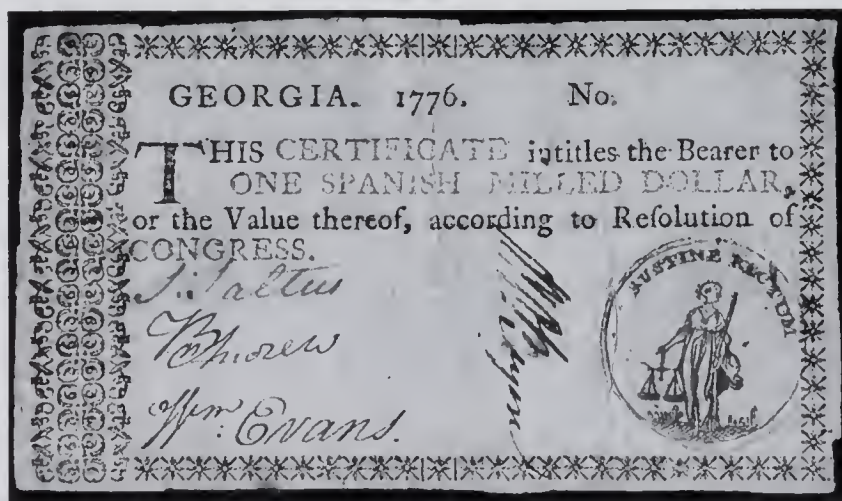 GEORGIA. 1776. No.
THIS CERTIFICATE intitles the Bearer to
ONE SPANISH MILLED DOLLAR,
or the Value thereof, according to Reſolution of
CONGRESS.
Wm. Evans.
SUSTINE RECTUM